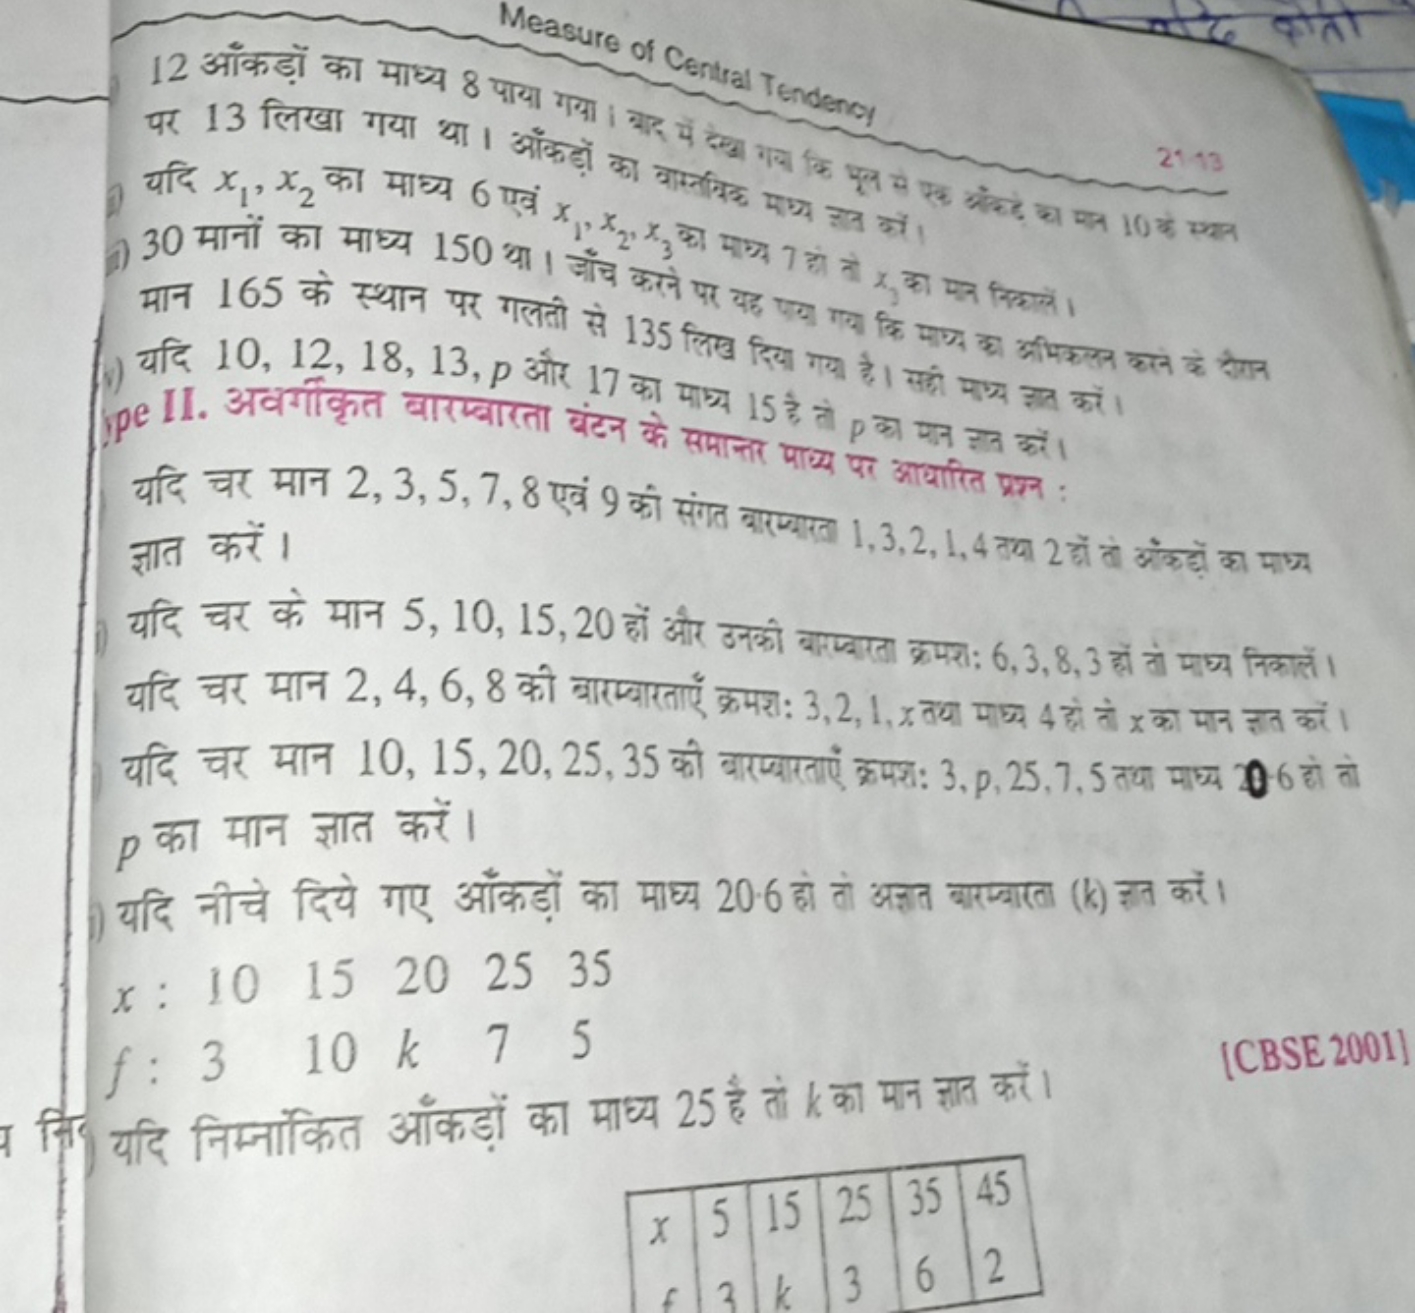 Measure of Central Tendency
21·13
12 आँकड़ों का माध्य 8 पाया गया। बाद में देखा गया कि भूल से एक आँकड़े का मान 10 के स्थान
पर 13 लिखा गया था। आँकड़ों का वास्तविक माध्य ज्ञात करें।
यदि x₁, x₂ का माध्य 6 एवं x₁, x₂, x₃ का माध्य 7 हो तो x₃ का मान निकालें।
30 मानों का माध्य 150 था। जाँच करने पर यह पाया गया कि माध्य का अभिकलन करने के दौरान
मान 165 के स्थान पर गलती से 135 लिख दिया गया है। सही माध्य ज्ञात करें।
यदि 10, 12, 18, 13, p और 17 का माध्य 15 है तो p का मान ज्ञात करें।
ype II. अवर्गीकृत बारम्बारता बंटन के समान्तर माध्य पर आधारित प्रश्न :
यदि चर मान 2, 3, 5, 7, 8 एवं 9 की संगत बारम्बारता 1, 3, 2, 1, 4 तथा 2 हों तो आँकड़ों का माध्य
ज्ञात करें।
यदि चर के मान 5, 10, 15, 20 हों और उनकी बारम्बारता क्रमशः 6, 3, 8, 3 हों तो माध्य निकालें।
यदि चर मान 2, 4, 6, 8 की बारम्बारताएँ क्रमशः 3, 2, 1, x तथा माध्य 4 हो तो x का मान ज्ञात करें।
यदि चर मान 10, 15, 20, 25, 35 की बारम्बारताएँ क्रमशः 3, p, 25, 7, 5 तथा माध्य 20·6 हो तो
p का मान ज्ञात करें।
यदि नीचे दिये गए आँकड़ों का माध्य 20·6 हो तो अज्ञात बारम्बारता (k) ज्ञात करें।
x : 10 15 20 25 35
f : 3 10 k 7 5
[CBSE 2001]
यदि निम्नांकित आँकड़ों का माध्य 25 है तो k का मान ज्ञात करें।
x 5 15 25 35 45
f 3 k 3 6 2